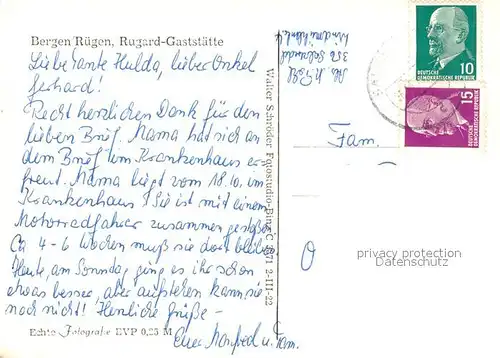 Bergen/Rügen, Rugard-Gaststätte
Liebe Tante Hulda, lieber Onkel
Gerhard!
Recht herzlichen Dank für den
lieben Brief. Mama hat sich an
dem Brief im Krankenhaus er-
freut. Mama liegt vom 18.10. im
Krankenhaus! Sie ist mit einem
Motorradfahrer zusammen gestoßen.
Ca 4-6 Wochen muß sie dort bleiben
Heute, am Sonntag ging es ihr schon
etwas besser, aber aufstehen kann sie
noch nicht! Herzliche Grüße -
Euer Manfred u. Fam.
Echte Fotografie EVP 0,25 M
Walter Schröder Fotostudio-Binz C 71 2-III-22
Abs.
Fam.
10
DEUTSCHE
DEMOKRATISCHE REPUBLIK
15
DEUTSCHE
DEMOKRATISCHE REPUBLIK
privacy protection
Datenschutz